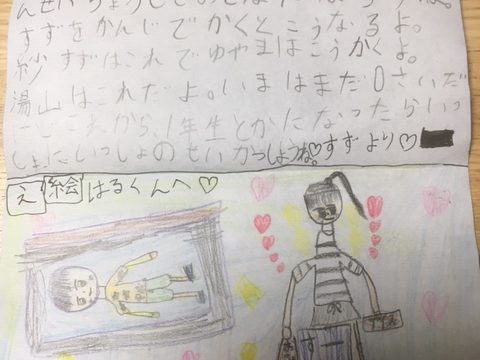 すずをかんじでかくとこうなるよ。
紗 すずはこれでゆやまはこうかくよ。
湯山はこれだよ。いまはまだ0さいだ
これから、1年生とかになったらいっ
しょにいっしょのせいかつしようね。♡すずより♡
え 絵 はるくんへ♡